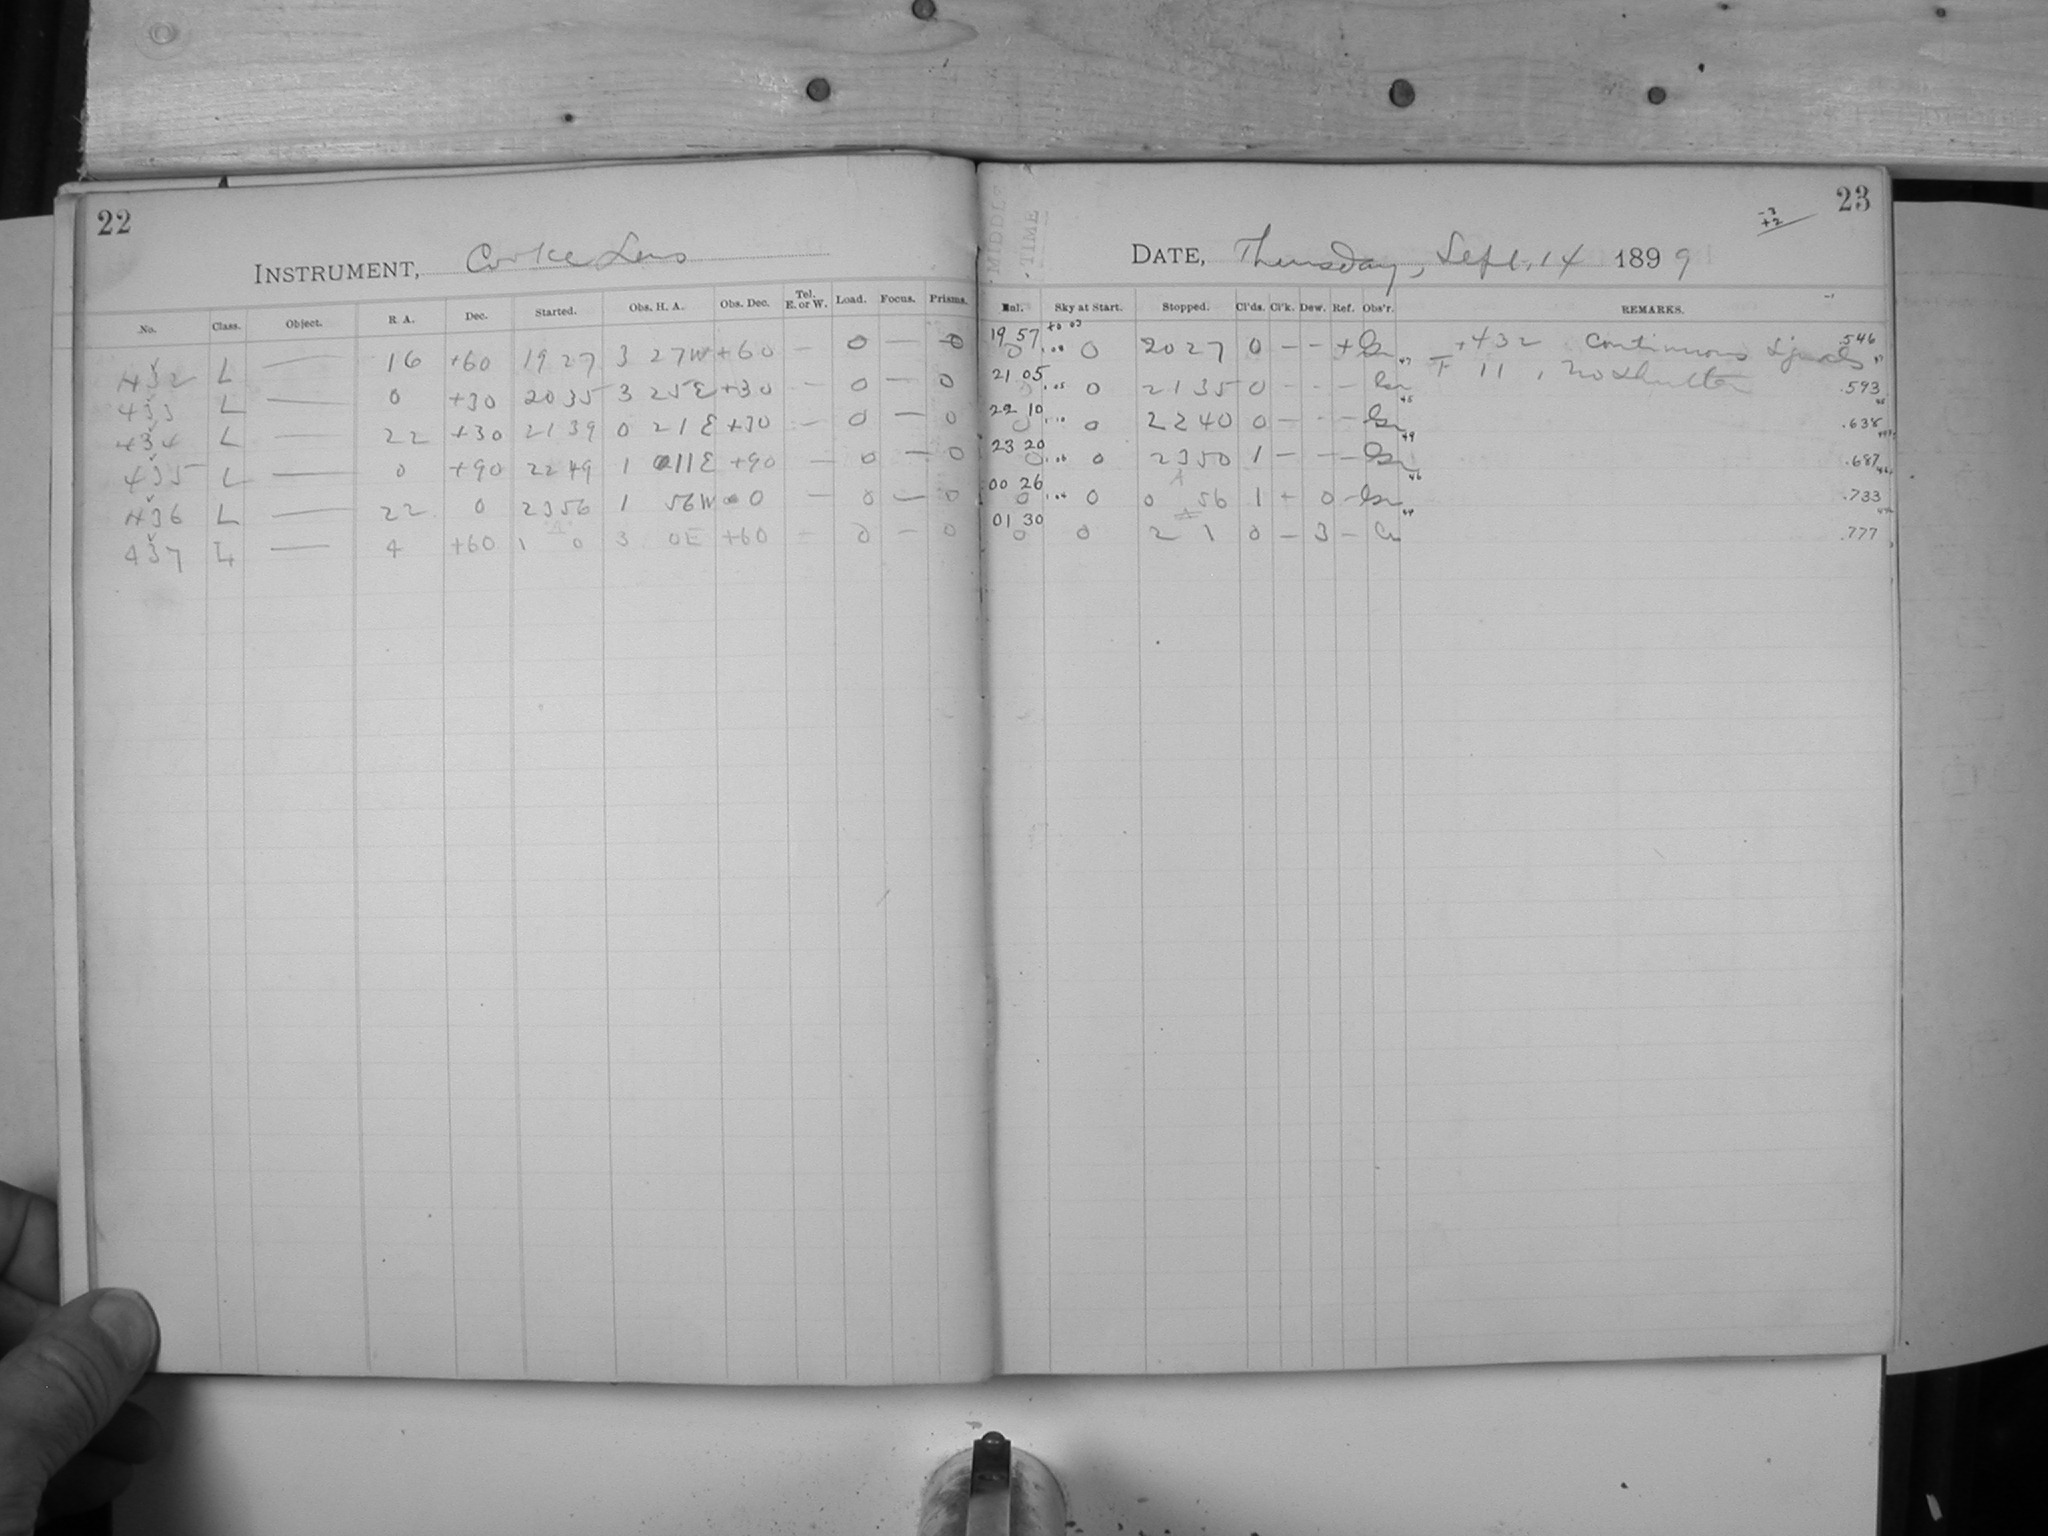 22
INSTRUMENT, Cooke Lens
No. Class. Object. R. A. Dec. Started. Obs. H. A. Obs. Dec. Tel. E. or W. Load. Focus. Prisms.
432 L — 16 +60 19 27 3 27W +60 — 0 — 0
433 L — 0 +30 20 35 3 25E +30 — 0 — 0
434 L — 22 +30 21 39 0 21E +30 — 0 — 0
435 L — 0 +90 22 49 1 11E +90 — 0 — 0
436 L — 22 0 23 56 1 56W 0 — 0 — 0
437 L — 4 +60 1 0 3 0E +60 — 0 — 0
MIDDLE TIME
23
-3
+2
DATE, Thursday, Sept. 14 1899
Enl. Sky at Start. Stopped. Cl'ds. Cl'k. Dew. Ref. Obs'r. REMARKS.
19 57 0 0 20 27 0 — — + +432 Continuous Signals .546
21 05 0 21 35 0 - - — F 11, no shutter .593
22 10 0 0 22 40 0 — - — .638
23 20 0 0 23 50 1 — — — .687
00 26 0 0 0 56 1 — 0 — .733
01 30 0 0 2 1 0 — 3 — .777